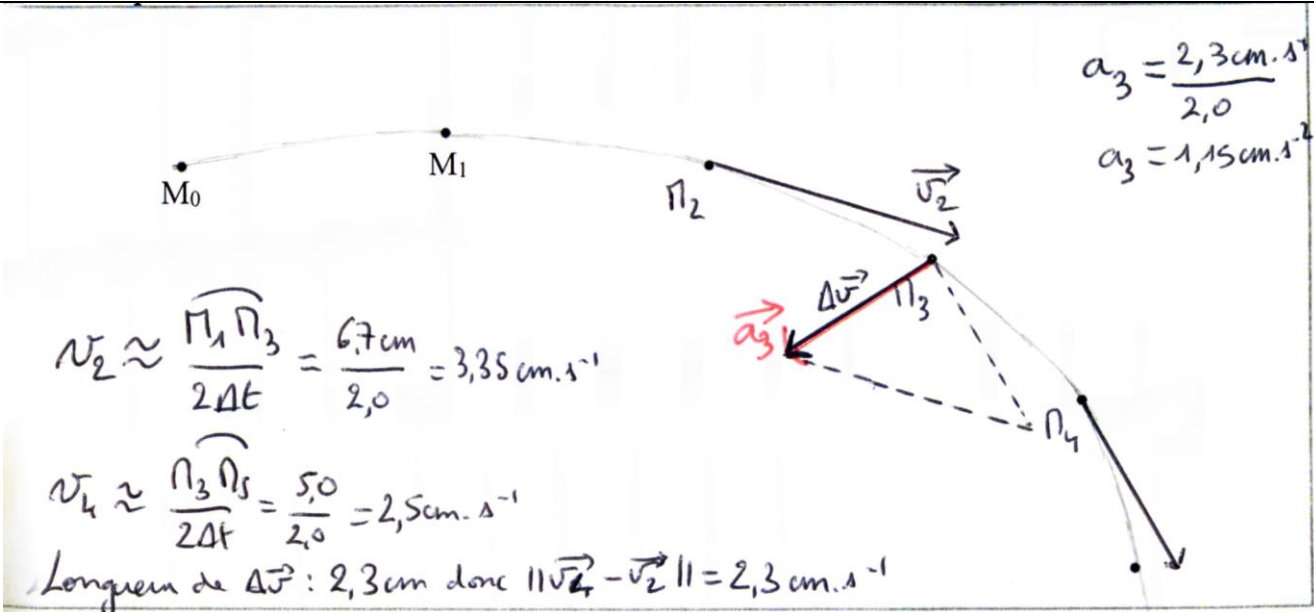 a₃ = 2,3 cm.s⁻¹ / 2,0
a₃ = 1,15 cm.s⁻²
M₀
M₁
M₂
v₂⃗
Δv⃗
M₃
a₃⃗
M₄
v₂ ≈ M₁M₃ / 2Δt = 6,7 cm / 2,0 = 3,35 cm.s⁻¹
v₄ ≈ M₃M₅ / 2Δt = 5,0 / 2,0 = 2,5 cm.s⁻¹
Longueur de Δv⃗ : 2,3 cm donc ||v₄⃗ - v₂⃗|| = 2,3 cm.s⁻¹